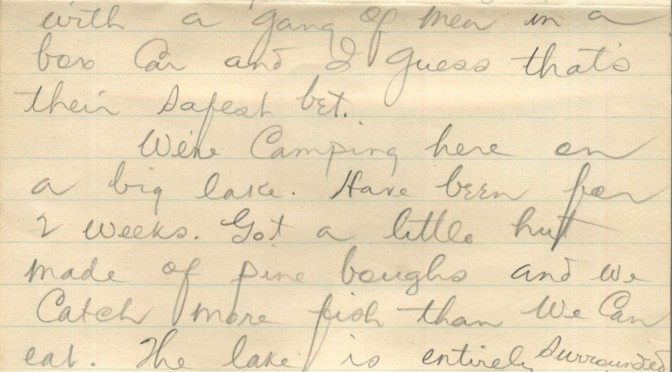 with a gang of men in a
box Car and I guess that's
their safest bet.
We're Camping here on
a big lake. Have been for
2 weeks. Got a little hut
made of pine boughs and we
Catch more fish than We Can
eat. The lake is entirely surrounded